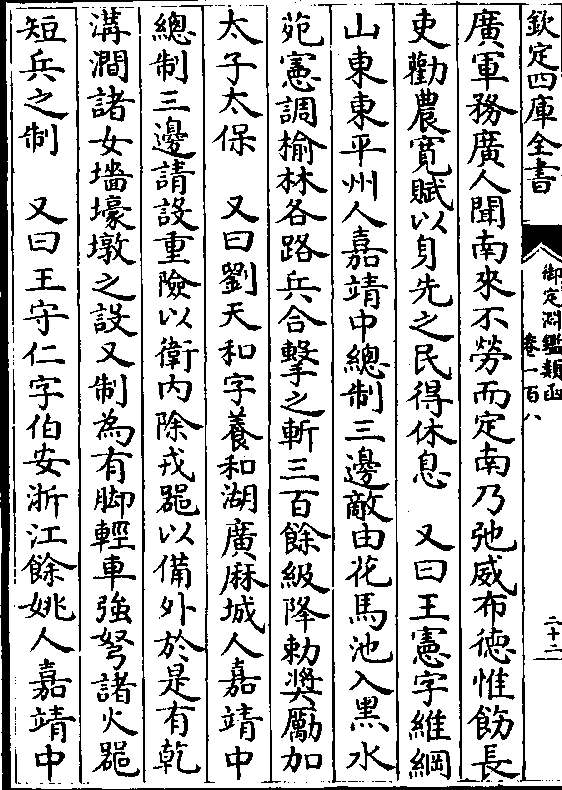 欽定四庫全書
御定淵鑑類函
卷一百八
二十二
廣軍務廣人聞南來不勞而定南乃弛威布德惟飭長
吏勸農寛賦以身先之民得休息　又曰王憲字維綱
山東東平州人嘉靖中總制三邊敵由花馬池入黑水
苑憲調榆林各路兵合擊之斬三百餘級降勅奬厲加
太子太保　又曰劉天和字養和湖廣麻城人嘉靖中
總制三邊請設重險以衛内除戎器以備外於是有乾
溝澗諸女墻壕墩之設又制為有脚輕車強弩諸火器
短兵之制　又曰王守仁字伯安浙江餘姚人嘉靖中